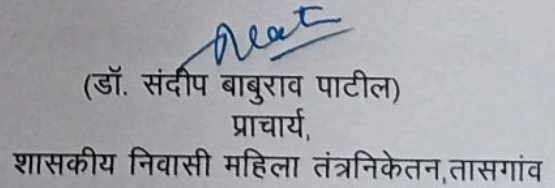 (डॉ. संदीप बाबुराव पाटील)
प्राचार्य,
शासकीय निवासी महिला तंत्रनिकेतन,तासगांव